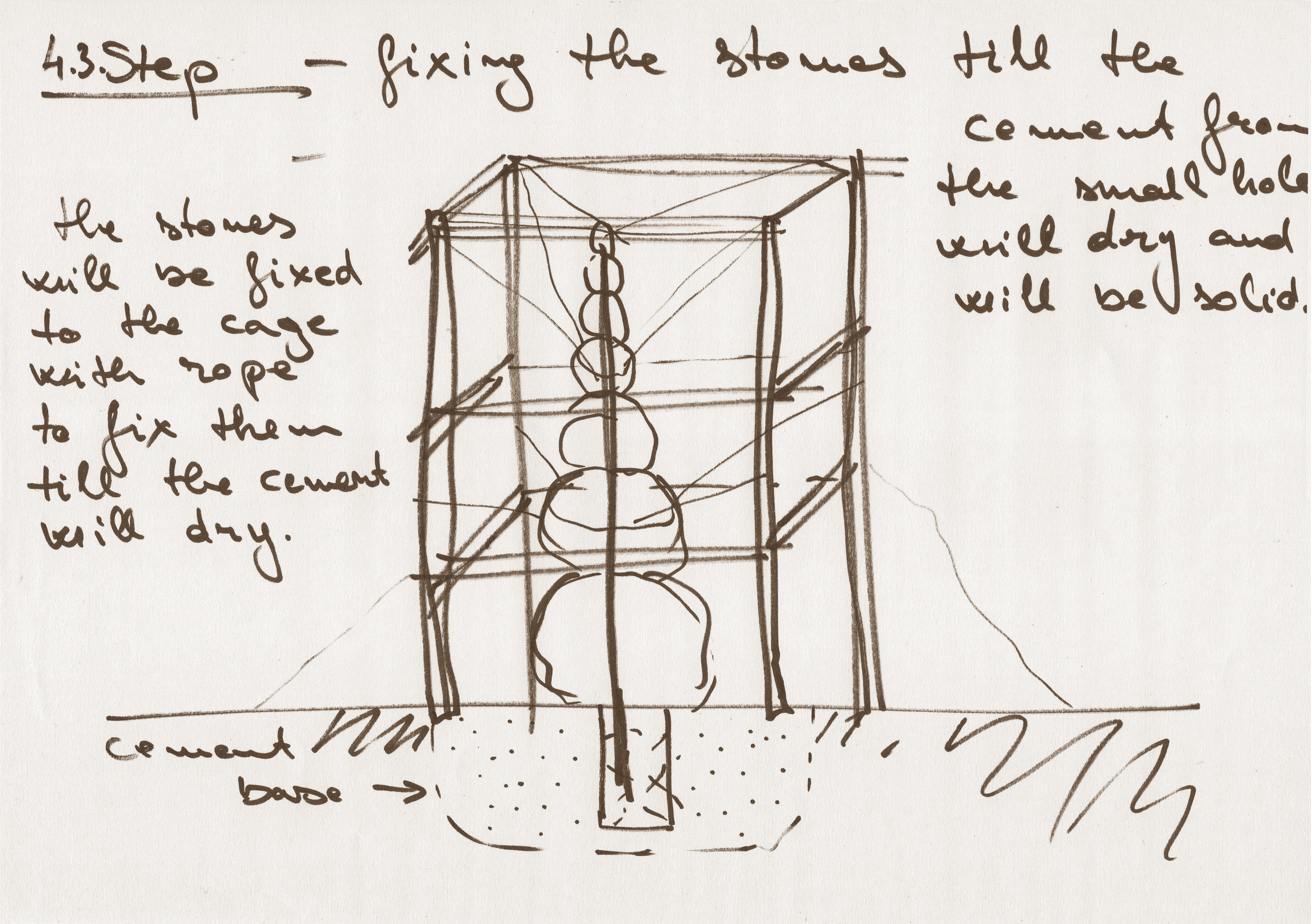 4.3.Step – fixing the stones till the
cement from
the small hole
will dry and
will be solid.
the stones
will be fixed
to the cage
with rope
to fix them
till the cement
will dry.
cement
base →